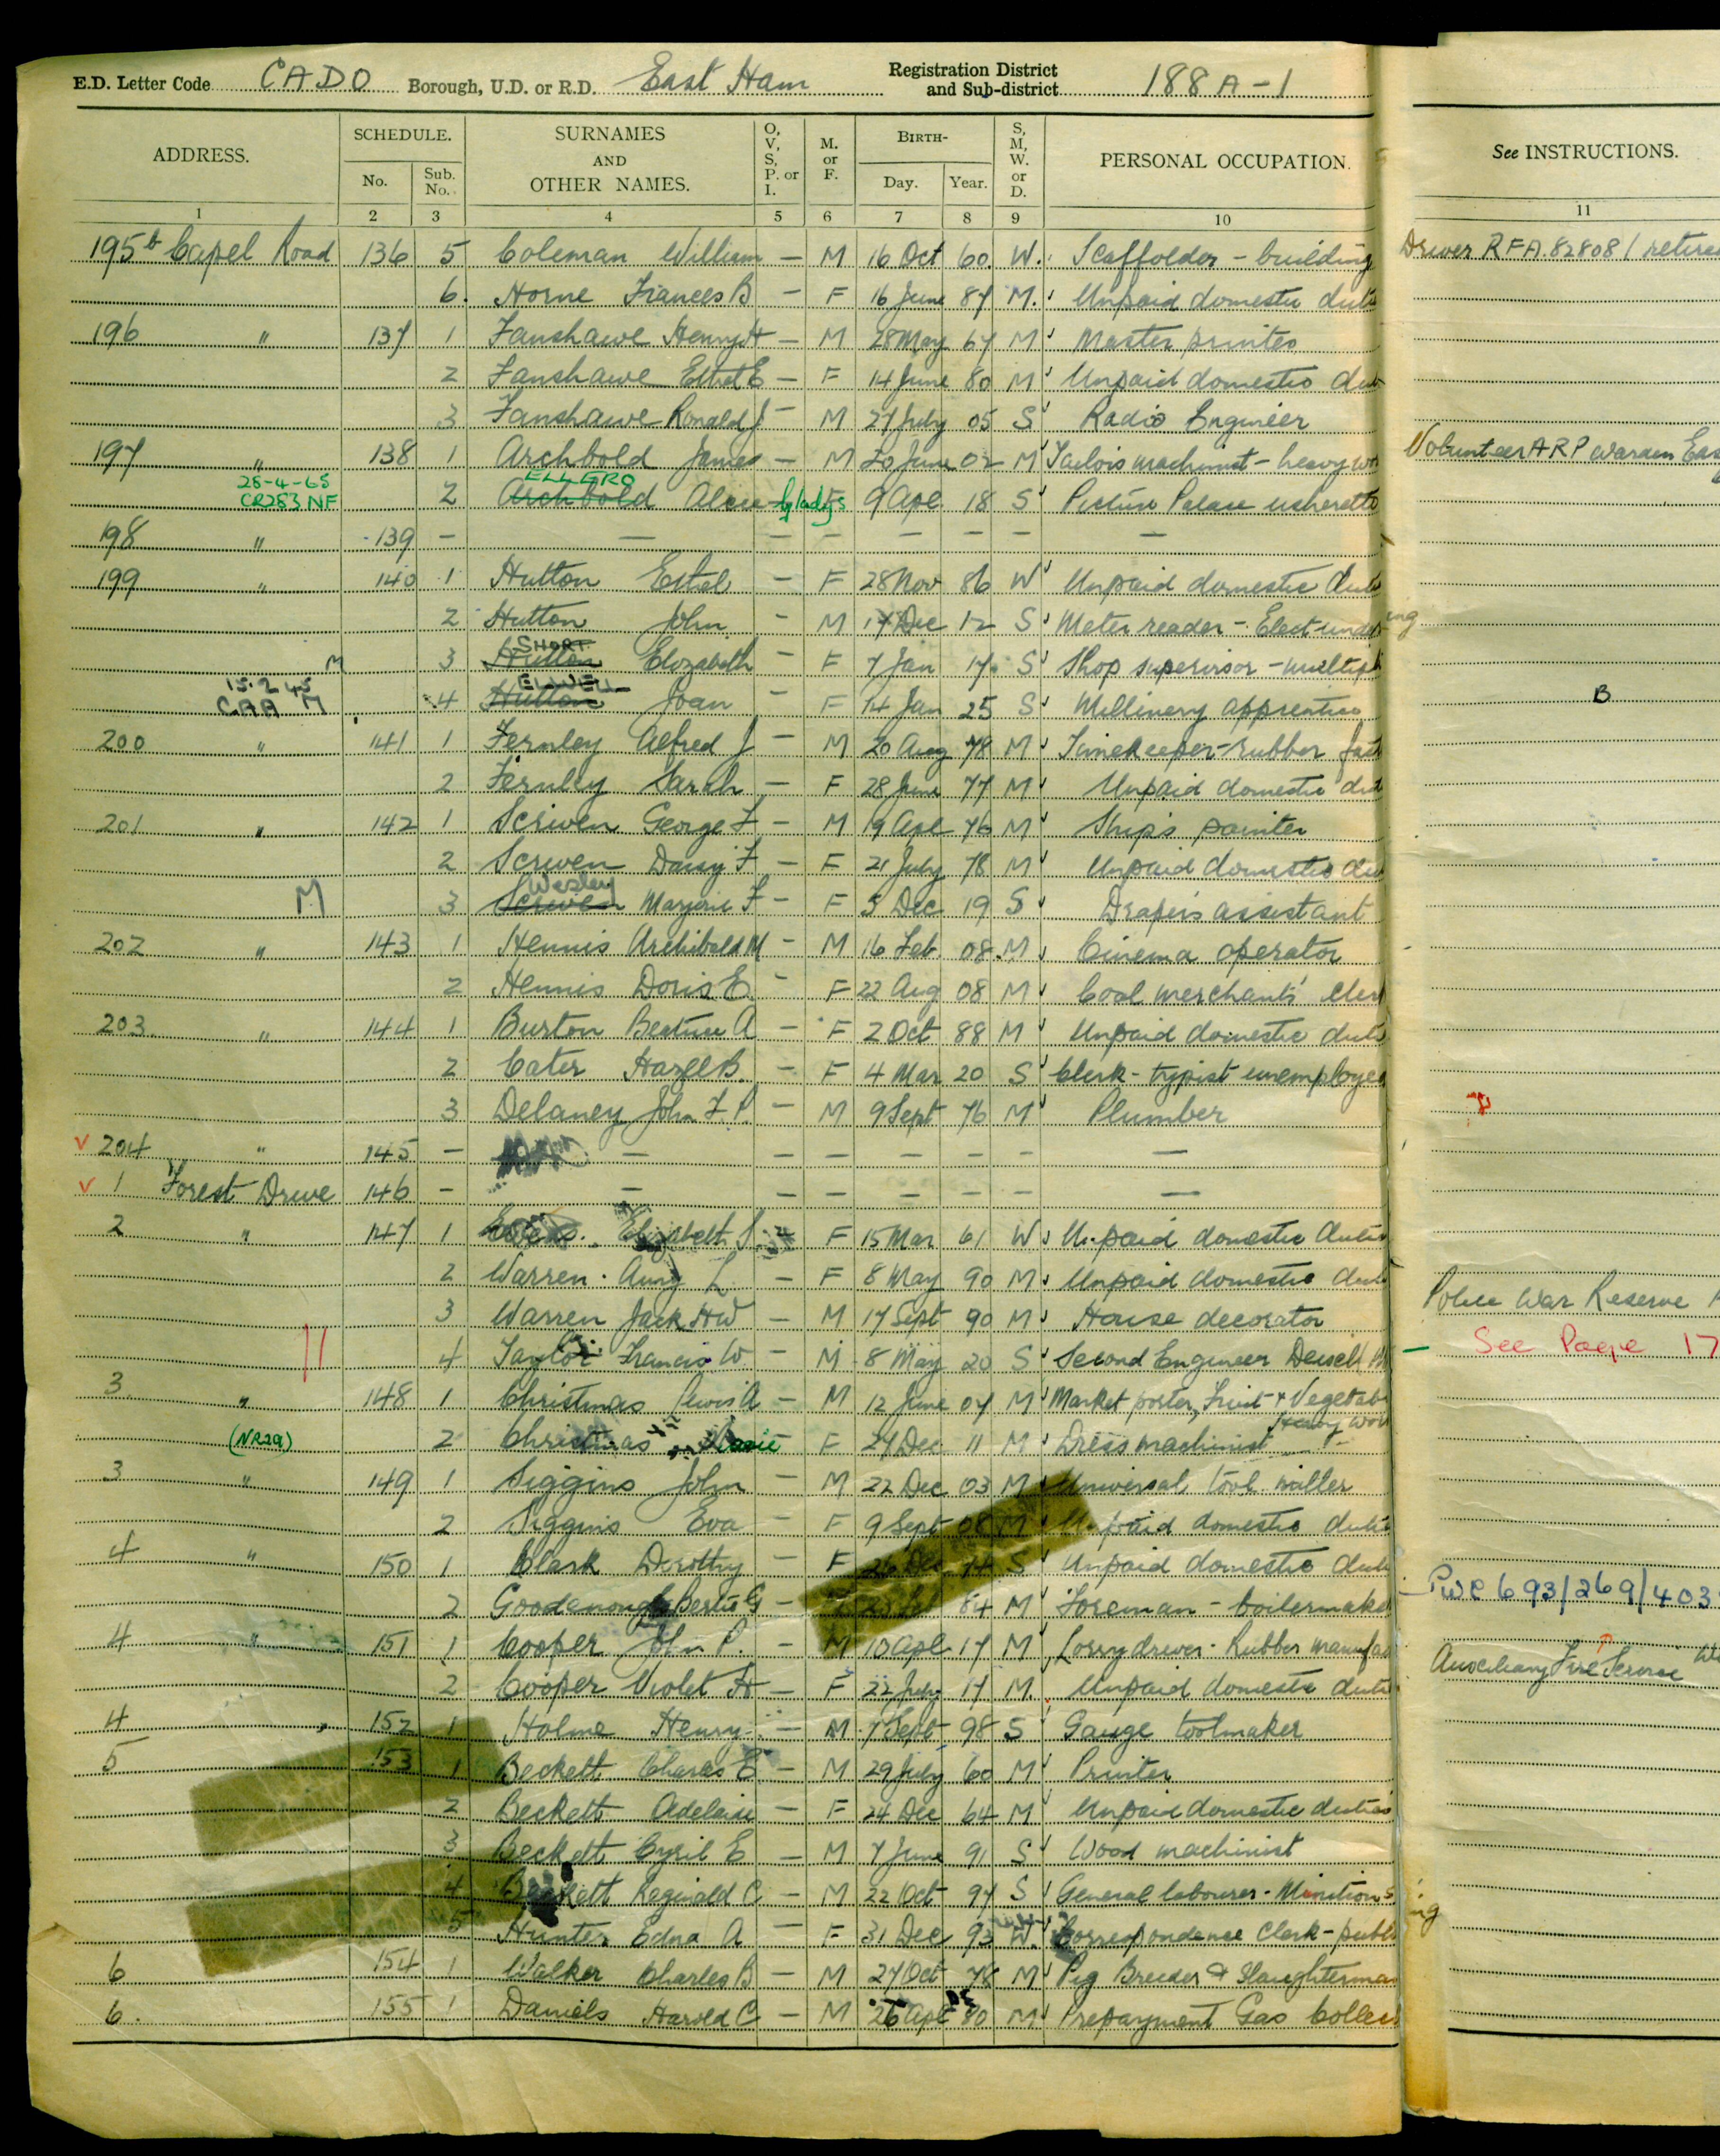 E.D. Letter Code CADO Borough, U.D. or R.D. East Ham Registration District and Sub-district 188A-1
ADDRESS. SCHEDULE. No. Sub. No. SURNAMES AND OTHER NAMES. O, V, S, P. or I. M. or F. BIRTH- Day. Year. S, M, W. or D. PERSONAL OCCUPATION. See INSTRUCTIONS.
1 2 3 4 5 6 7 8 9 10 11
195b Capel Road 136 5 Coleman William — M 16 Oct 60 W. Scaffolder - building Driver RFA.828081 retired
6. Horne Frances B — F 16 June 87 M. Unpaid domestic duti
196 " 137 1 Fanshawe Henry H — M 28 May 67 M Master printer
2 Fanshawe Ethel E — F 14 June 80 M Unpaid domestic dut
3 Fanshawe Ronald J — M 27 July 05 S Radio Engineer
197 " 138 1 Archbold James — M 20 June 02 M Tailors machinist - heavy wor Volunteer ARP Warden Eas
28-4-65 CR283 NF 2 Archbold ELLERO Alice Gladys F 9 Apl 18 S Picture Palace usherette
198 " 139 — — — — — — — —
199 " 140 1 Hutton Ethel — F 28 Nov 86 W Unpaid domestic duti
2 Hutton John — M 17 Dec 12 S Meter reader - Elect. under
M 3 Hutton SHORT Elizabeth — F 7 Jan 17 S Shop supervisor - multipl
15.2.45 CAA M 4 Hutton ELWELL Joan — F 14 Jan 25 S Millinery apprentice B
200 " 141 1 Fernley Alfred J — M 20 Aug 78 M Timekeeper - rubber fact
2 Fernley Sarah — F 28 June 77 M Unpaid domestic dut
201 " 142 1 Scriven George F — M 19 Apl 76 M Ship's painter
2 Scriven Daisy F — F 21 July 78 M Unpaid domestic du
M 3 Scriven Wesley Marjorie F — F 5 Dec 19 S Drapers assistant
202 " 143 1 Hennis Archibald M — M 16 Feb 08 M Cinema operator
2 Hennis Doris E. — F 22 Aug 08 M Coal merchants' cler
203 " 144 1 Burton Beatrice A — F 2 Oct 88 M Unpaid domestic duti
2 Cater Hazel B. — F 4 Mar 20 S Clerk - typist unemployed
3 Delaney John F. P. — M 9 Sept 76 M Plumber
v 204 " 145 — — — — — — — —
v 1 Forest Drive 146 — — — — — — — —
2 " 147 1 Elizabeth S F 15 Mar 61 W Unpaid domestic duti
2 Warren Amy L — F 8 May 90 M Unpaid domestic duti
3 Warren Jack HW — M 17 Sept 90 M House decorator Police War Reserve
4 Taylor Francis W. — M 8 May 20 S Second Engineer Deisel See Page 17
3 " 148 1 Christmas Lewis A — M 12 June 07 M Market porter, Fruit & Vegetab
(NR29) 2 Christmas F 27 Dec 11 M Dress machinist Heavy wor
3 " 149 1 Siggins John — M 22 Dec 03 M Universal tool miller
2 Siggins Eva — F 9 Sept 08 M Unpaid domestic duti
4 " 150 1 Clark Dorothy — F 26 Dec 14 S Unpaid domestic duti
2 Goodenough Bertie G — 84 M Foreman - boilermaker PWR 693/269/403
4 " 151 1 Cooper John P. — M 10 Apl 17 M Lorry driver - Rubber manufac Auxiliary Fire Service
2 Cooper Violet H — F 22 July 17 M. Unpaid domestic duti
4 " 152 1 Holme Henry — M 7 Sept 98 S Gauge toolmaker
5 153 1 Beckett Charles E — M 29 July 60 M Printer
2 Beckett Adelaide — F 24 Dec 64 M Unpaid domestic duties
3 Beckett Cyril E — M 7 June 91 S Wood machinist
4 Beckett Reginald C — M 22 Oct 97 S General labourer - Munitions
5 Hunter Edna A — F 31 Dec 92 W. Correspondence Clerk - publ
6 154 1 Walker Charles B — M 27 Oct 78 M Pig Breeder & Slaughterman
6. 155 1 Daniels Harold C — M 26 Apl 80 M Prepayment Gas Collec